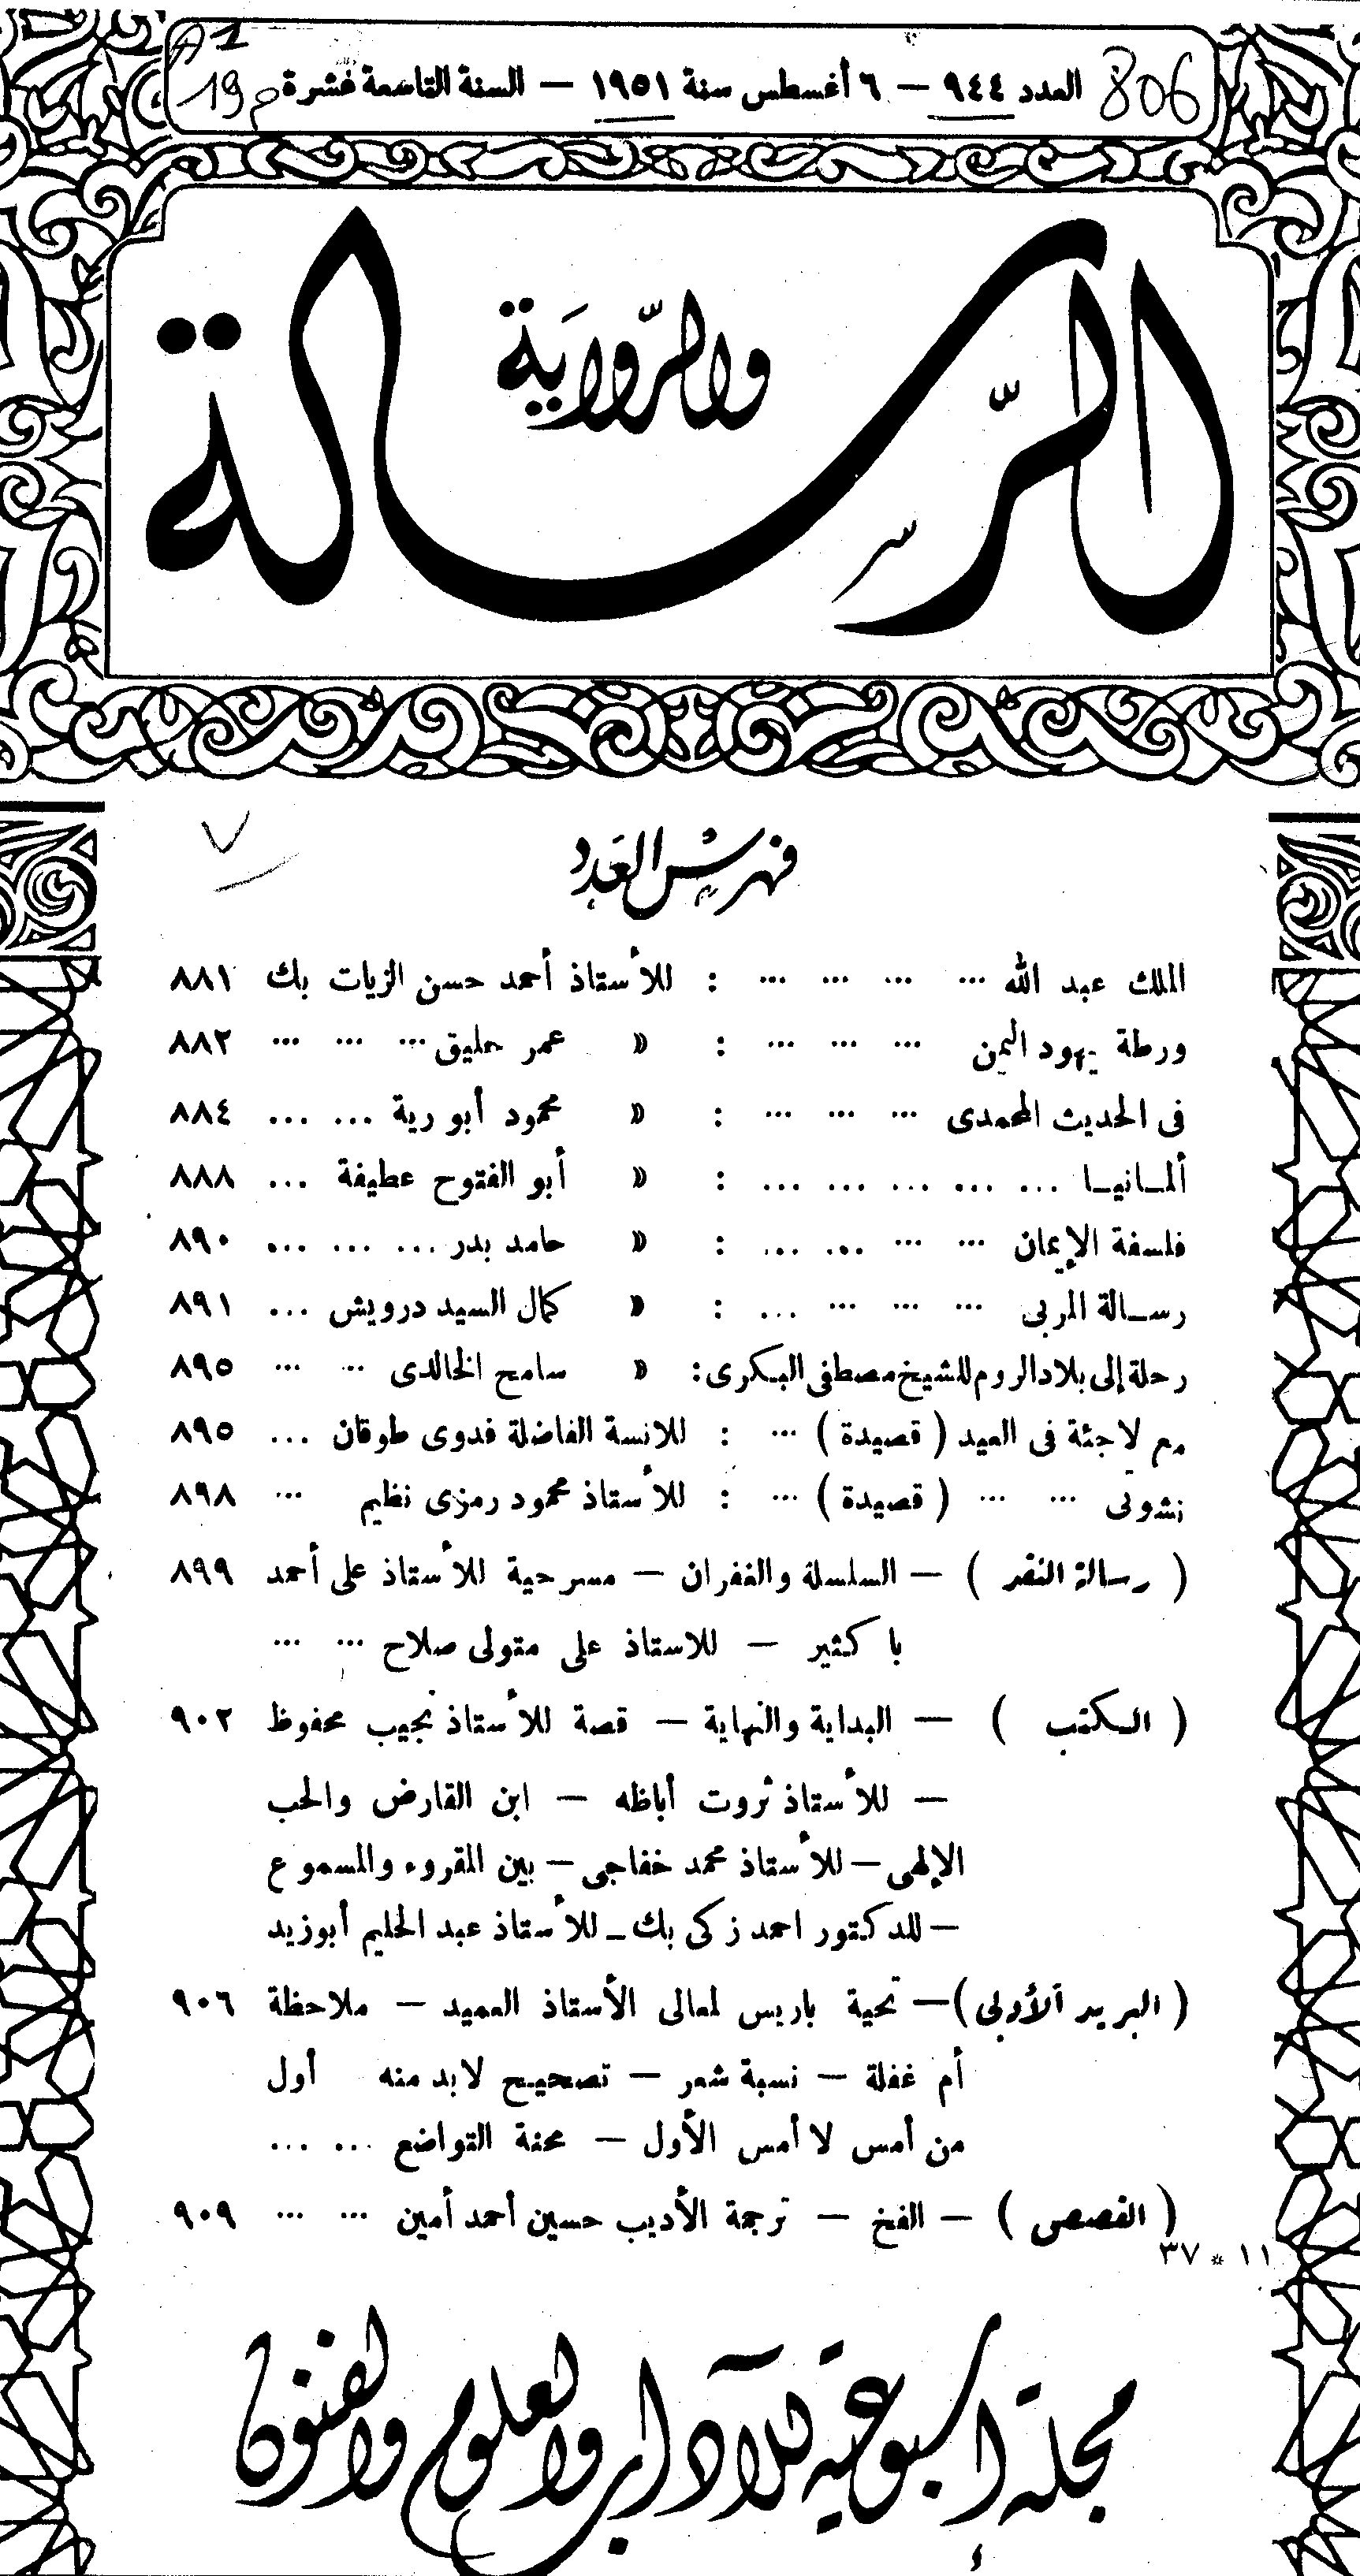 A1
806 العدد ٩٤٤ — ٦ أغسطس سنة ١٩٥١ — السنة التاسعة عشرة م 19
الرسالة
والرواية
فهرس العدد
٧
الملك عبد الله ... ... ... ... : للأستاذ أحمد حسن الزيات بك ٨٨١
ورطة يهود اليمن ... ... ... : « عمر حليق ... ... ... ٨٨٢
فى الحديث المحمدى ... ... ... : « محمود أبو رية ... ... ٨٨٤
ألمـانيـا ... ... ... ... ... : « أبو الفتوح عطيفة ... ٨٨٨
فلسفة الإيمان ... ... ... ... : « حامد بدر ... ... ... ٨٩٠
رسـالة المربى ... ... ... ... : « كمال السيد درويش ... ٨٩١
رحلة إلى بلاد الروم للشيخ مصطفى البكرى : « سامح الخالدى ... ... ٨٩٥
مع لاجئة فى العيد ( قصيدة ) ... : للانسة الفاضلة فدوى طوقان ... ٨٩٥
نشوتى ... ... ( قصيدة ) ... : للأستاذ محمود رمزى نظيم ... ٨٩٨
( رسالة النقد ) — السلسلة والغفران — مسرحية للأستاذ على أحمد ٨٩٩
با كثير — للاستاذ على متولى صلاح ... ...
( الـكتب ) — البداية والنهاية — قصة للأستاذ نجيب محفوظ ٩٠٢
— للأستاذ ثروت أباظه — ابن الفارض والحب
الإلهى — للأستاذ محمد خفاجى — بين المقروء والمسموع
— للدكتور احمد زكى بك — للأستاذ عبد الحليم أبوزيد
( البريد الأدبى ) — تحية باريس لمعالى الأستاذ العميد — ملاحظة ٩٠٦
أم غفلة — نسبة شعر — تصحيح لابد منه أول
من أمس لا أمس الأول — محنة التواضع ... ...
( القصص ) — الفخ — ترجمة الأديب حسين أحمد أمين ... ... ٩٠٩
١١ * ٣٧
مجلة أسبوعية للآداب والعلوم والفنون